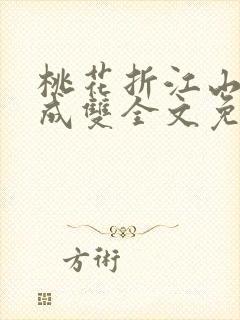 桃花折江山
成雙全文免
方術